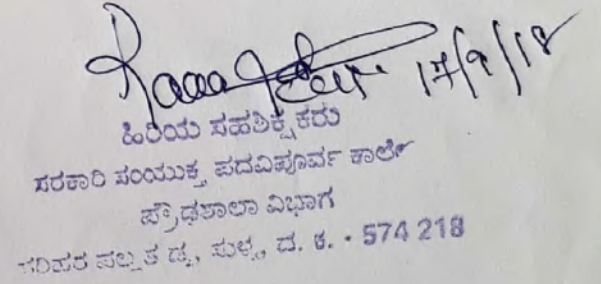 17/9/18
ಹಿರಿಯ ಸಹಶಿಕ್ಷಕರು
ಸರಕಾರಿ ಸಂಯುಕ್ತ ಪದವಿಪೂರ್ವ ಕಾಲೇಜು
ಪ್ರೌಢಶಾಲಾ ವಿಭಾಗ
ಸುಳ್ಯ, ದ. ಕ. - 574 218